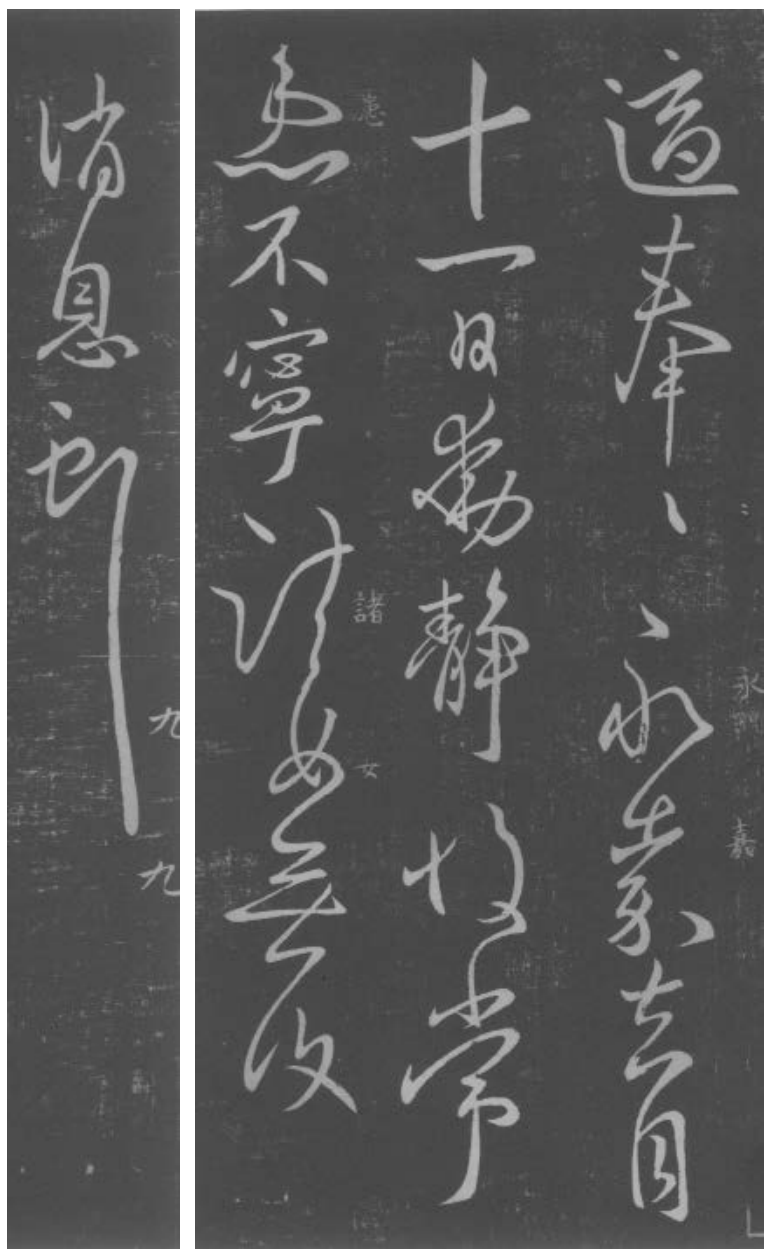 適奉〻永嘉去月
十一日動靜故常
患不寧諸女無復
消息
永
嘉
患
諸
女
九
九